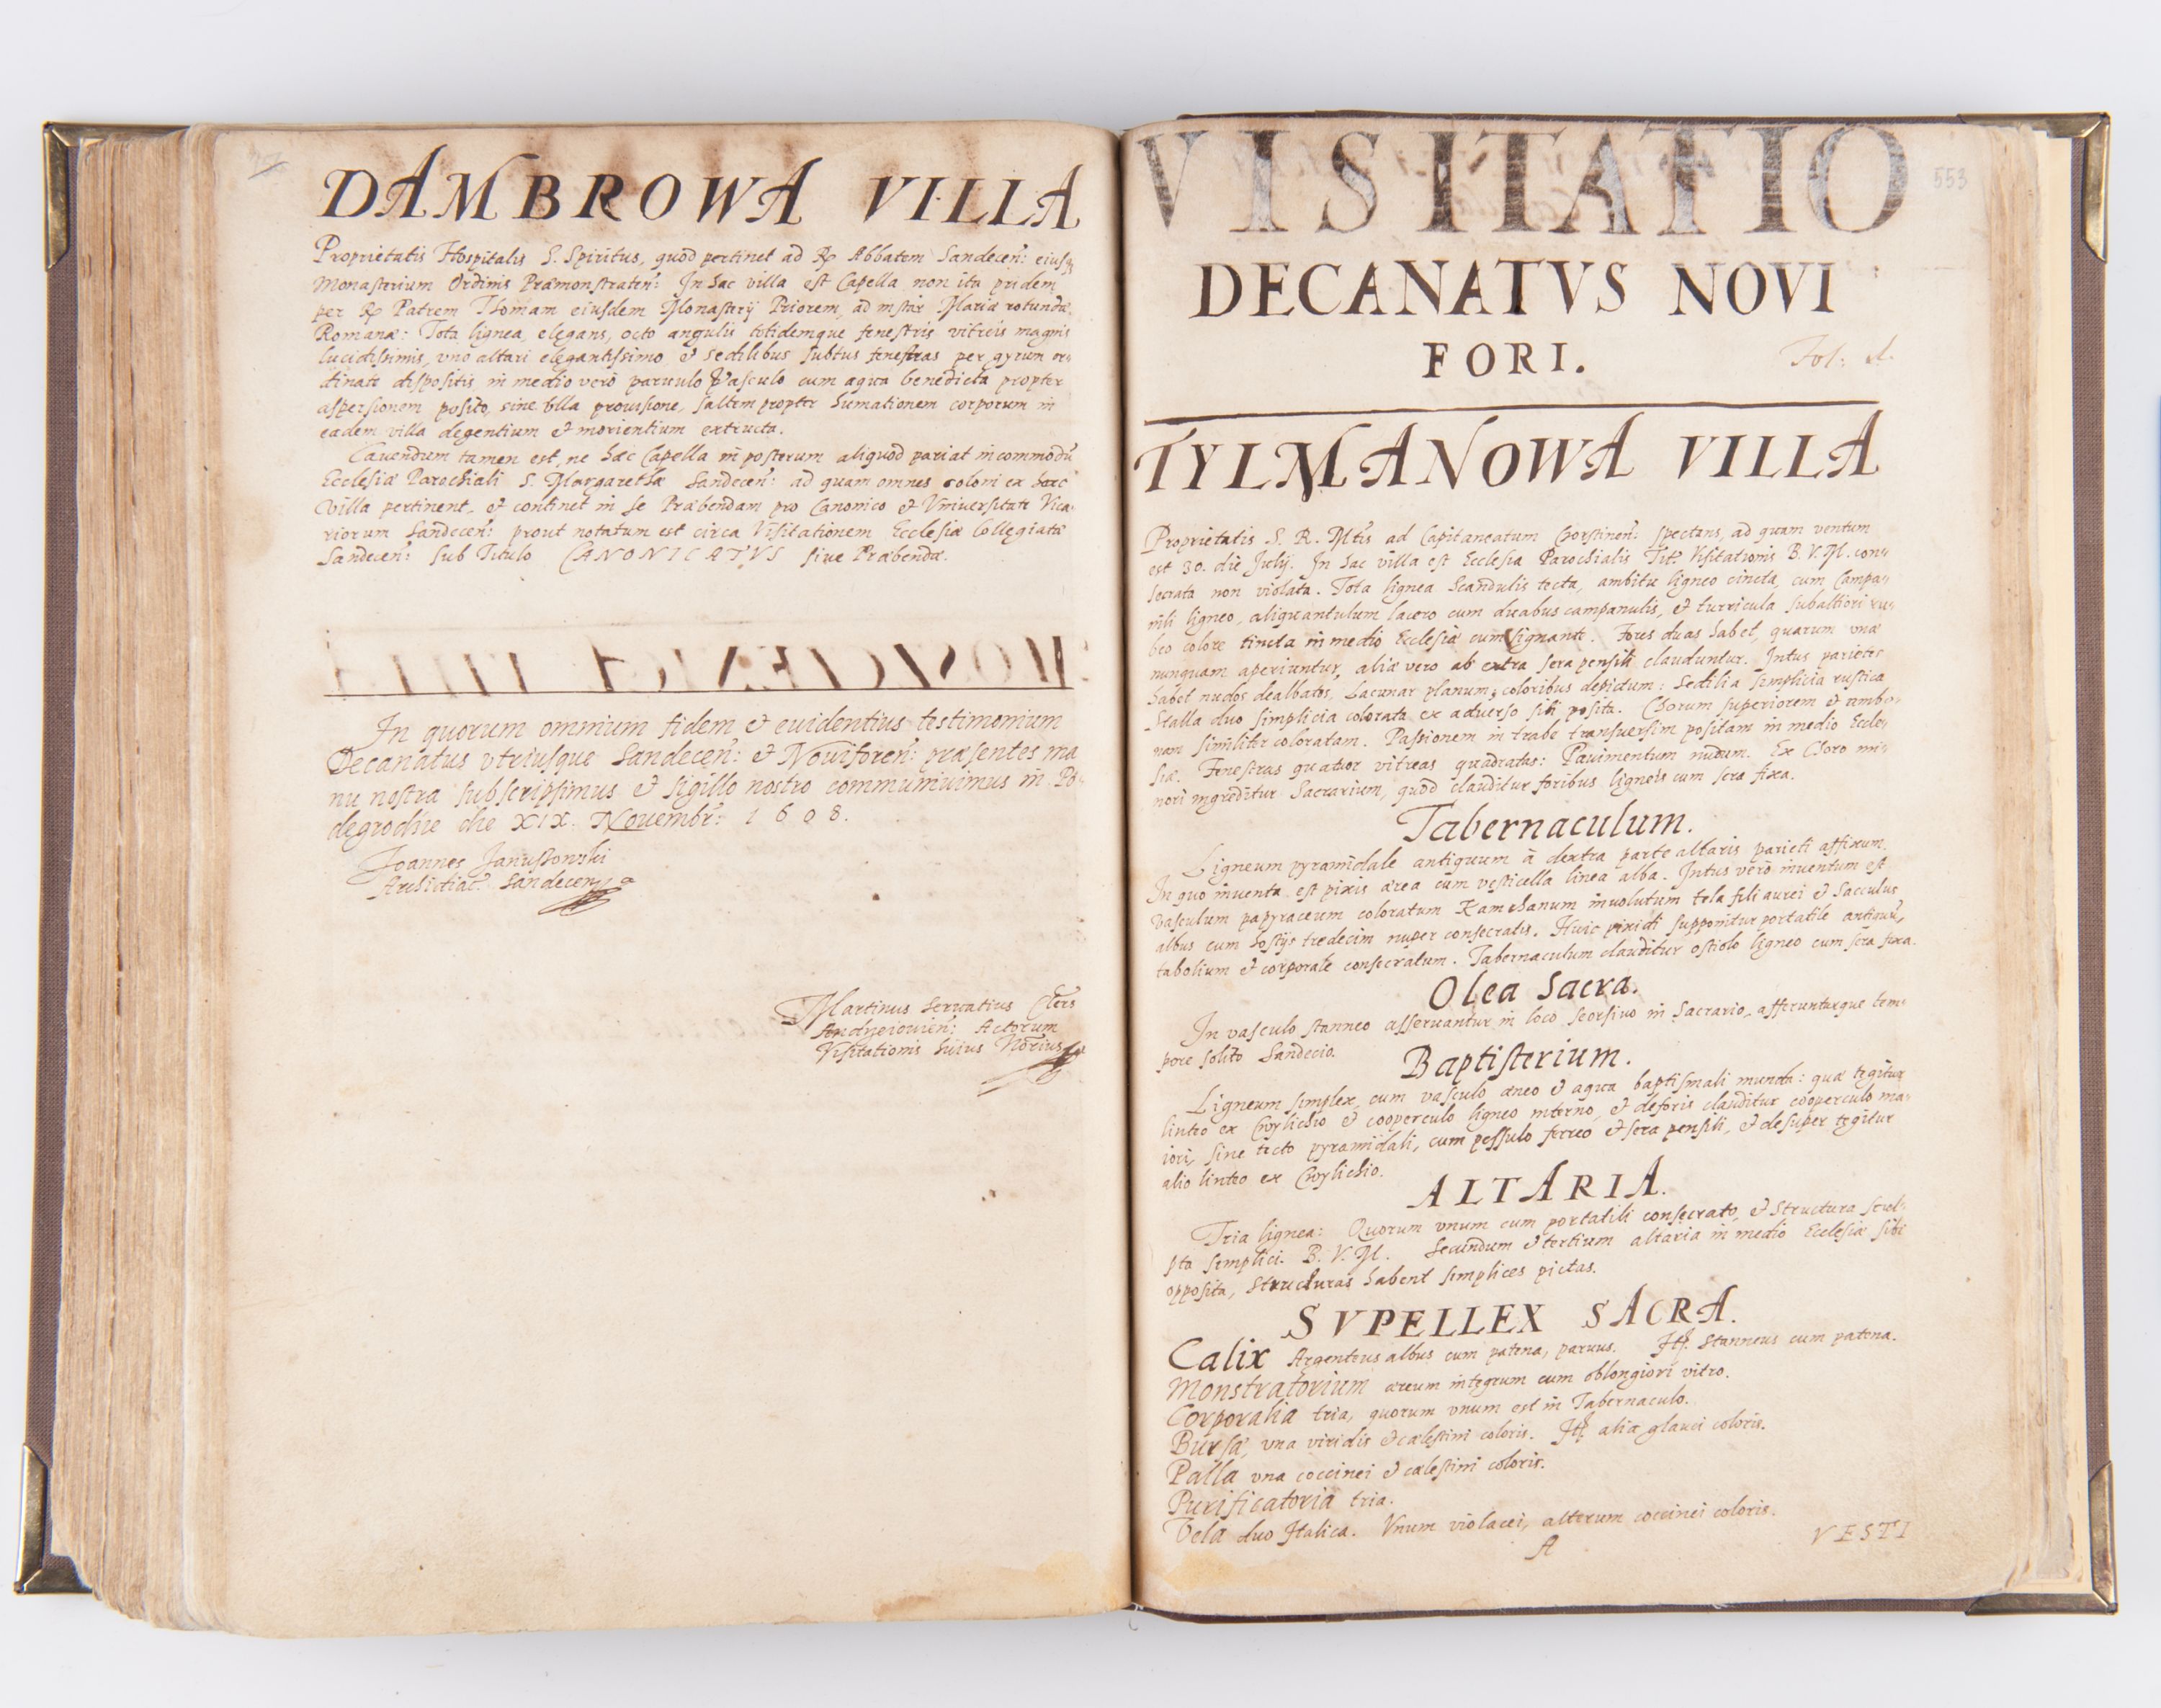 DAMBROWA VILLA
Proprietatis Hospitalis S. Spiritus, quod pertinet ad R. Abbatem Sandecen: eiusq;
Monasterium Ordinis Præmonstraten: In hac villa est Capella non ita pridem
per R. Patrem Thomam eiusdem Monasterij Priorem, ad instar Mariæ rotundæ
Romanæ: Tota lignea, elegans, octo angulis totidemque fenestris vitreis magnis
lucidissimis, vno altari elegantissimo, & sedilibus subtus fenestras per gyrum or-
dinate dispositis in medio verò paruulo vasculo cum aqua benedicta propter
aspersionem posito, sine vlla prouisione, saltem propter humationem corporum in
eadem villa degentium & morientium extructa.
Cauendum tamen est, ne hæc Capella in posterum aliquod pariat incommodũ
Ecclesiæ Parochiali S. Margarethæ Sandecen: ad quam omnes coloni ex hac
Villa pertinent, et continet in se Præbendam pro Canonico & Vniuersitate Vica-
riorum Sandecen: prout notatum est circa Visitationem Ecclesiæ Collegiatæ
Sandecen: sub Titulo CANONICATVS siue Præbendæ.
In quorum omnium fidem & euidentius testimonium
Decanatus vtriusque Sandecen: & Nouiforen: præsentes ma
nu nostra subscripsimus & sigillo nostro communiuimus in Po-
degrodzie die XIX. Nouembr: 1608.
Joannes Januszowski
Archidiac. Sandecen
Martinus Seruatius Cler
Andrzeiouien: Actorum
Visitationis huius Norius
VISITATIO
553
DECANATVS NOVI
FORI.
Fol: 1.
TYLMANOWA VILLA
Proprietatis S. R. Mtis ad Capitaneatum Chorstinen: spectans, ad quam ventum
est 30. die Julij. In hac villa est Ecclesia Parochialis Tit: Visitationis B. V. M. con-
secrata non violata. Tota lignea scandulis tecta, ambitu ligneo cincta, cum Campa-
nili ligneo, aliquantulum lacero cum duabus campanulis, & turricula subaltiori ru-
beo colore tincta in medio Ecclesiæ cum signante. Fores duas habet, quarum vnæ
nunquam aperiuntur, aliæ vero ab extra sera pensili clauduntur. Intus parietes
habet nudos dealbatos, Lacunar planum, coloribus depictum: Sedilia simplicia rustica
Stalla duo simplicia colorata ex aduerso sibi posita. Chorum superiorem & ambo-
nam similiter coloratam. Passionem in trabe transuersim positam in medio Eccle-
siæ. Fenestras quatuor vitreas quadratas: Pauimentum nudum. Ex Choro mi-
nori ingreditur Sacrarium, quod clauditur foribus ligneis cum sera fixa.
Tabernaculum.
Ligneum pyramidale antiquum à dextra parte altaris parieti affixum.
In quo inuenta est pixis ærea cum vesticella linea alba. Intus verò inuentum est
vasculum papyraceum coloratum Kamchanum inuolutum tela fili aurei & Sacculus
albus cum hostijs tredecim nuper consecratis. Huic pixidi supponitur portatile antiquũ,
tabolium & corporale consecratum. Tabernaculum clauditur ostiolo ligneo cum sera fixa.
Olea Sacra.
In vasculo stanneo asseruantur in loco seorsiuo in Sacrario, afferunturque tem-
pore solito Sandecio.
Baptisterium.
Ligneum simplex, cum vasculo æneo & aqua baptismali munda: quæ tegitur
linteo ex Cwylichio & cooperculo ligneo interno, & deforis clauditur cooperculo ma-
iori, sine tecto pyramidali, cum pessulo ferreo & sera pensili, & desuper tegitur
alio linteo ex Cwylichio.
ALTARIA.
Tria lignea: Quorum vnum cum portatili consecrato, & structura scul-
pta simplici. B. V. M. Secundum & tertium altaria in medio Ecclesiæ sibi
opposita, structuras habent simplices pictas.
SVPELLEX SACRA.
Calix Argenteus albus cum patena, paruus. Itẽ. Stanneus cum patena.
Monstratorium æreum integrum cum oblongiori vitro.
Corporalia tria, quorum vnum est in Tabernaculo.
Bursæ, vna viridis & cælestini coloris. Itẽ alia glauci coloris.
Palla vna coccinei & cælestini coloris.
Purificatoria tria.
Vela duo Italica. Vnum violacei, alterum coccinei coloris.
A
VESTI